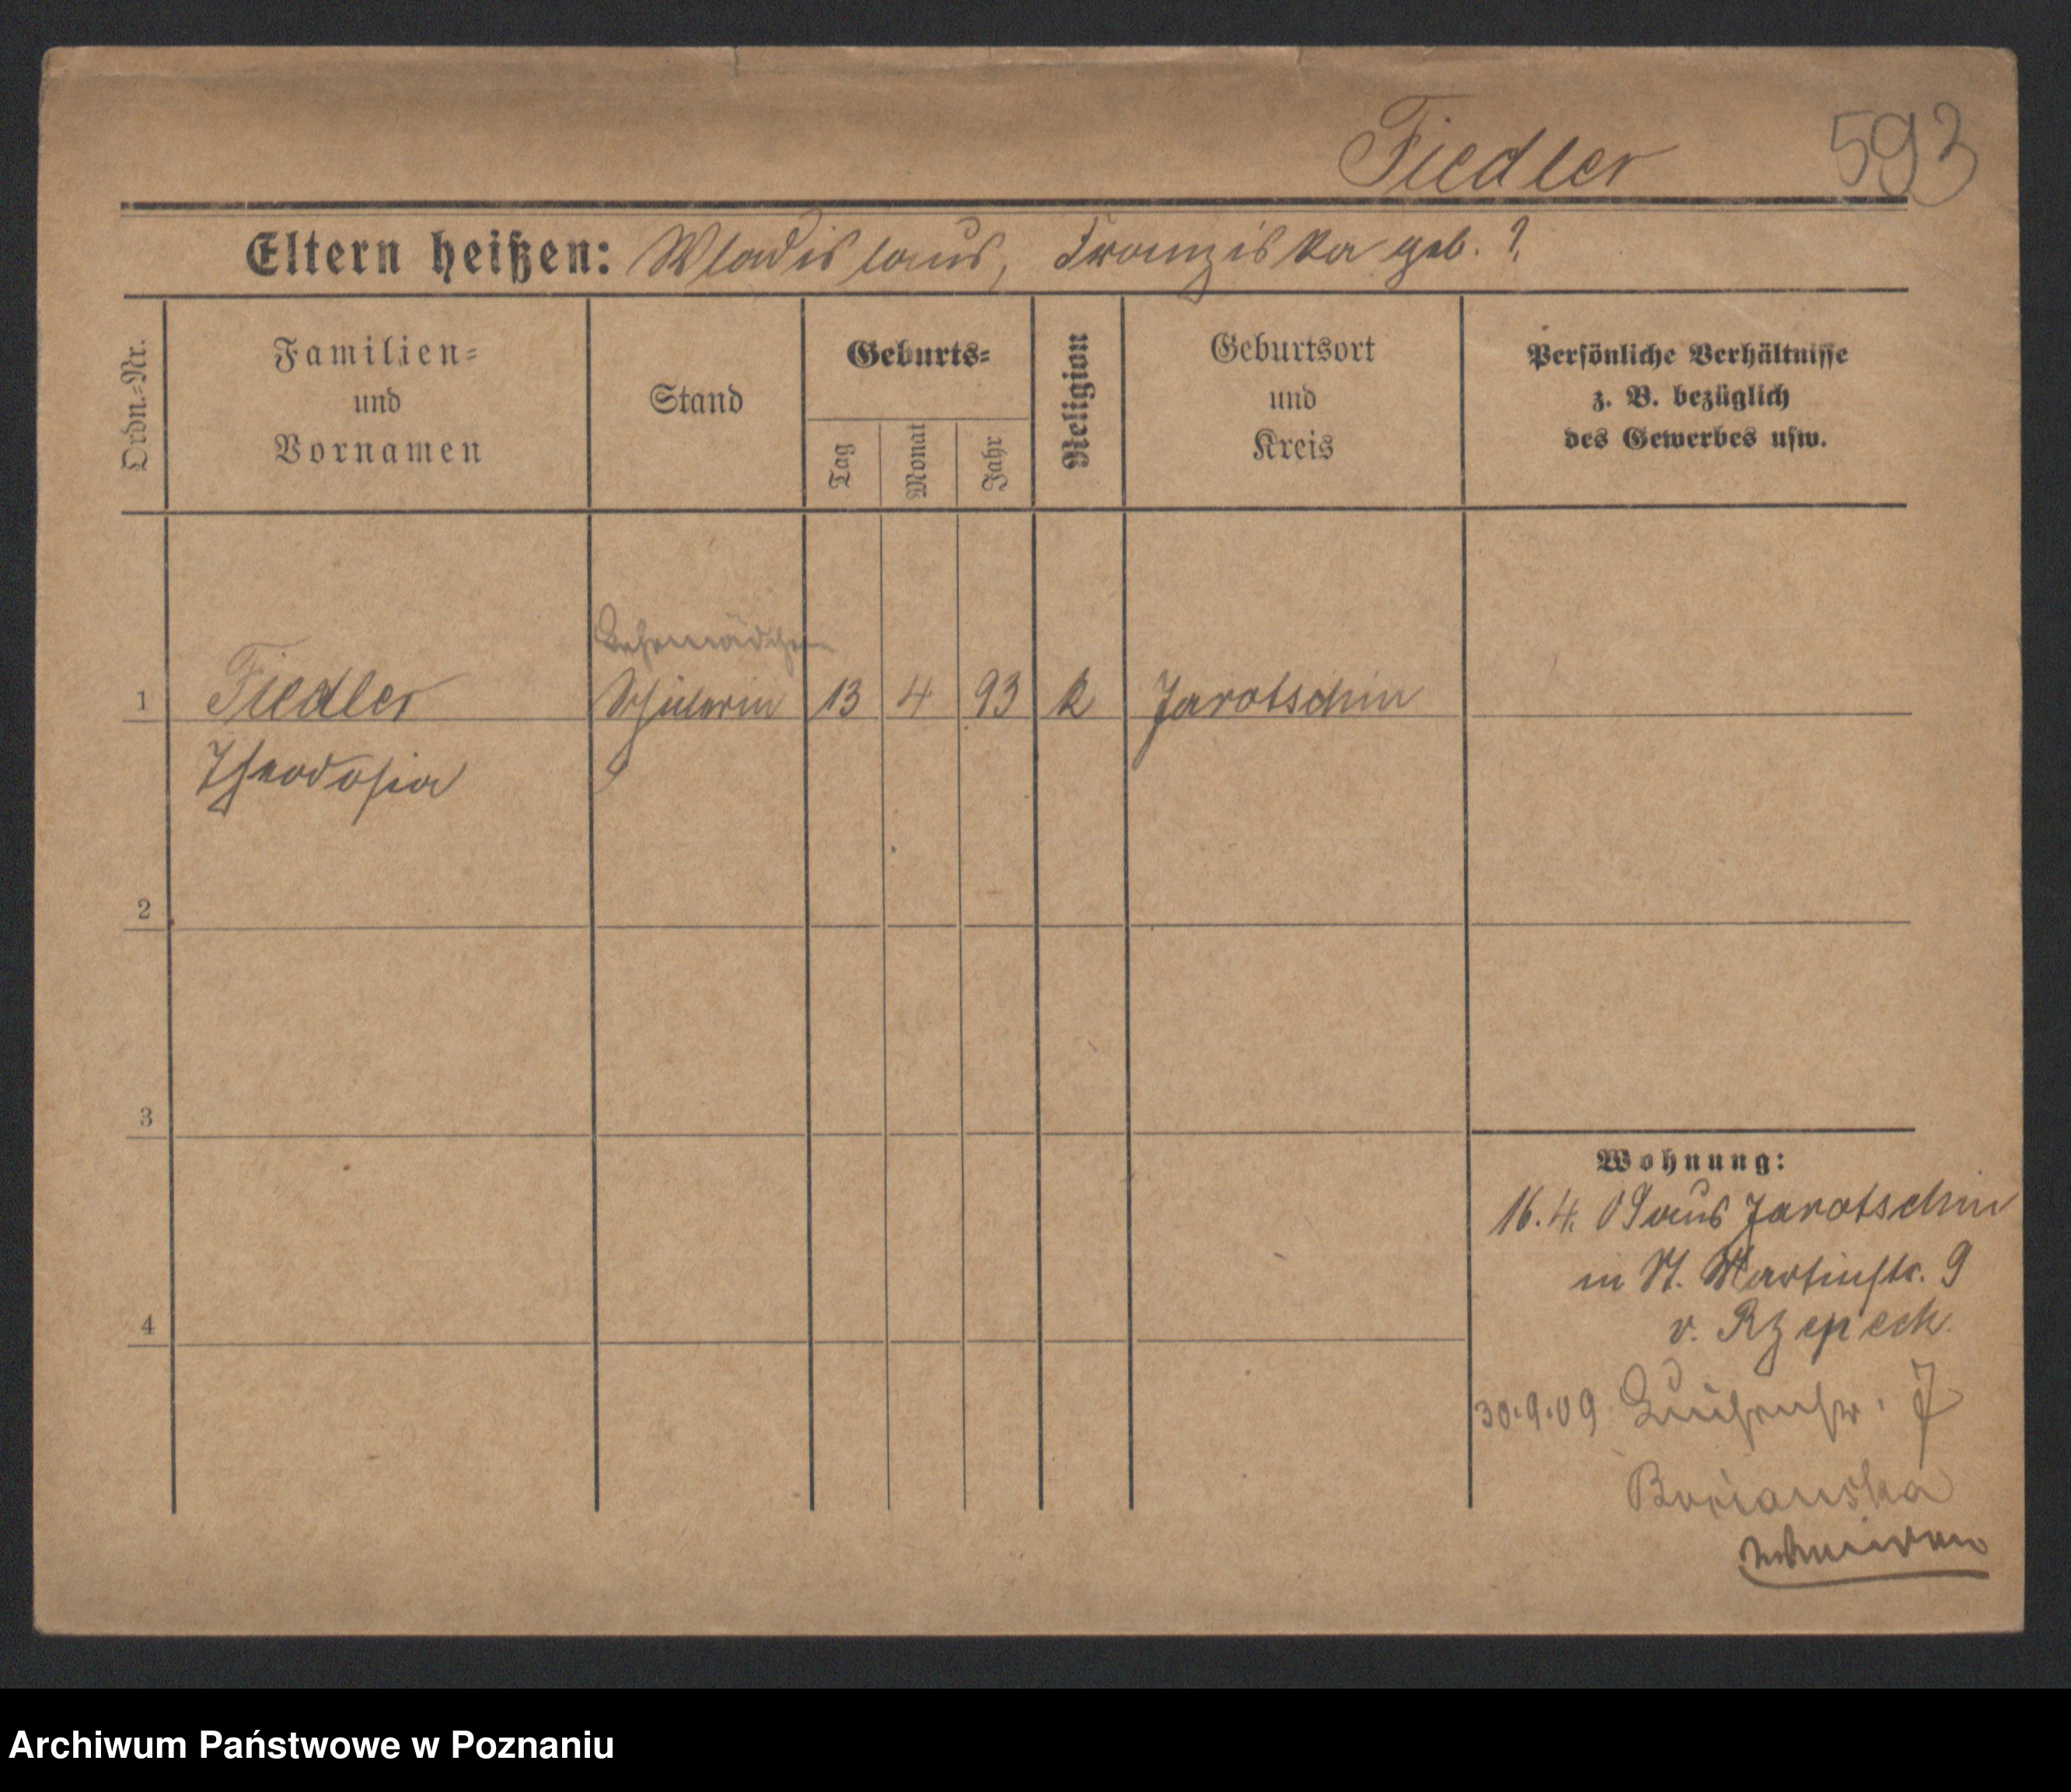 Fiedler 593
Eltern heißen: Wladislaus, Franziska geb. ?
Ordn.-Nr.
Familien-
und
Vornamen
Stand
Geburts-
Tag
Monat
Jahr
Religion
Geburtsort
und
Kreis
Persönliche Verhältnisse
z. B. bezüglich
des Gewerbes usw.
Lehrmädchen
1 Fiedler Schülerin 13 4 93 k Jarotschin
Theodosia
2
3
4
Wohnung:
16. 4. 09 aus Jarotschin
in St. Martinstr. 9
v. Rzepeck.
30.9.09. Luisenstr. 7
Archiwum Państwowe w Poznaniu